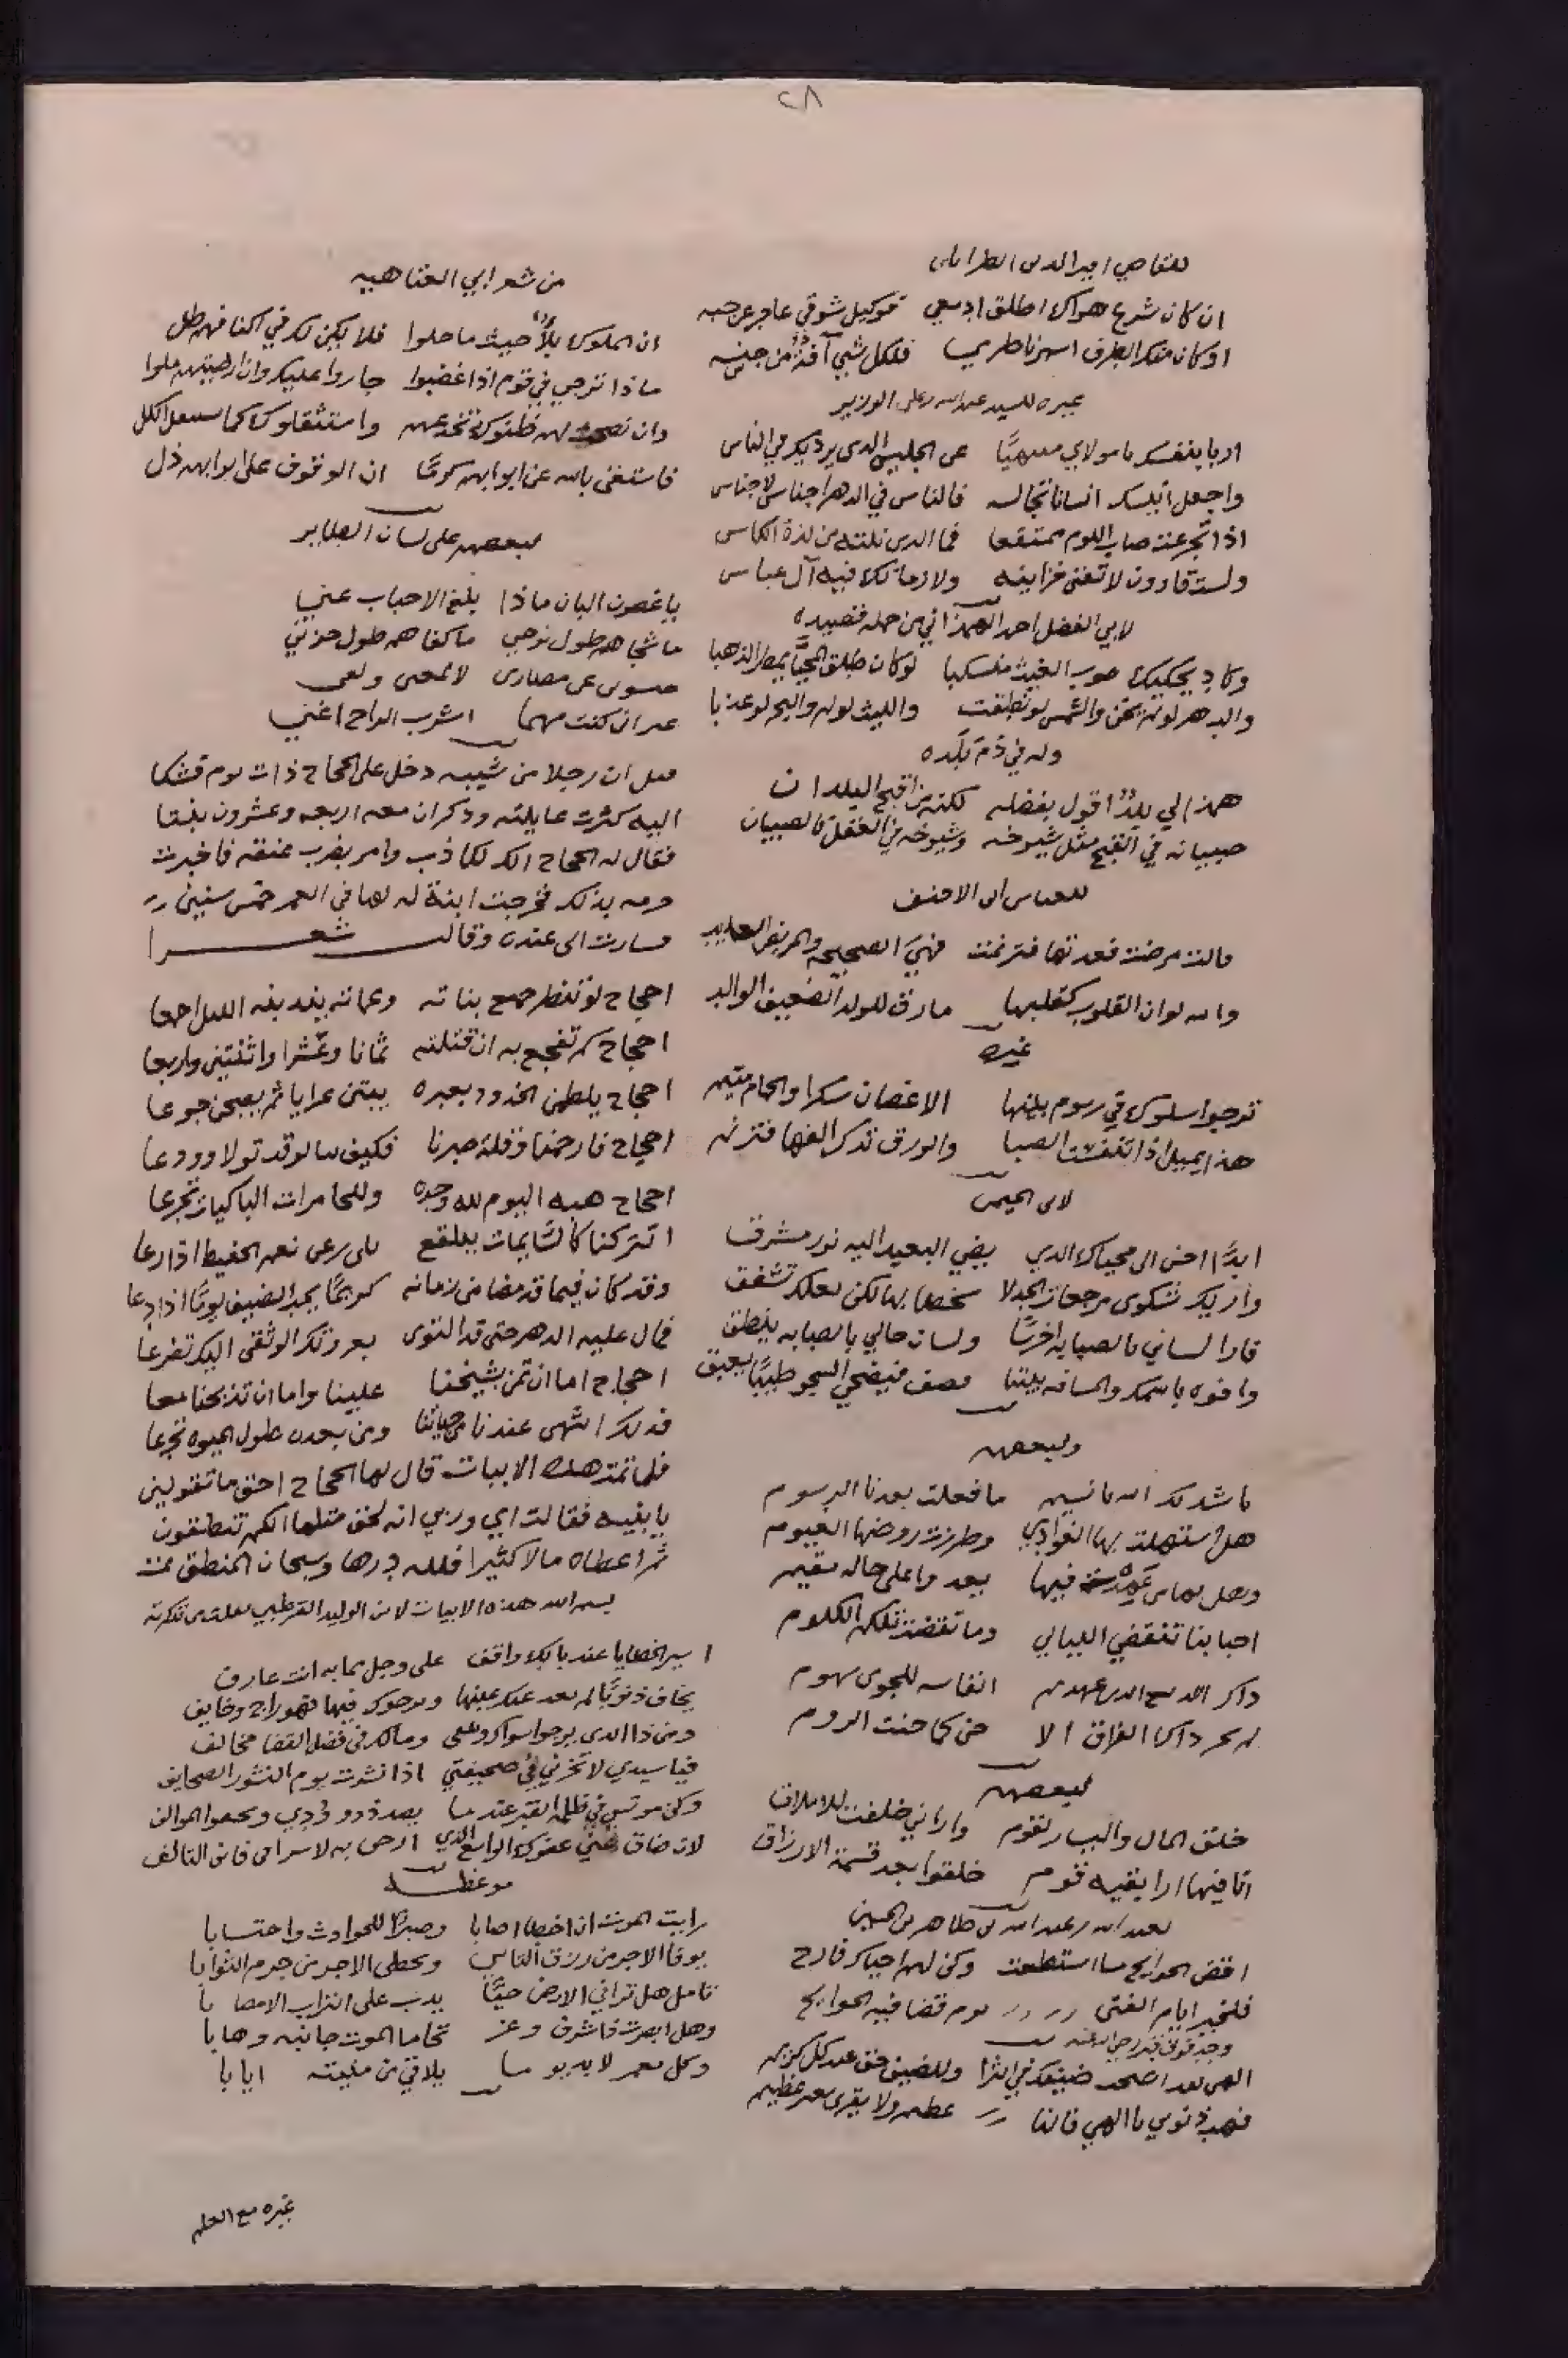 ٢٨
للقاضي امير الدين الطرابلسي
ان كان شرع هواك اطلق ادمعي فوكيل شوقي عاجز عن حبسه
او كان منك الطرف اسهر ناظري فلكل شيي آفة من جنسه
غيره للسيد عبد الله بن علي الوزير
اربا بنفسك يا مولاي عن الجليس الدي يرديك في الناس
واجعل انيسك انسانا تجالسه فالناس في الدهر اجناس لاجناس
اذا تجرعت صاب اللوم ممتقعا فما الدي نلته من لذة الكاس
ولست قارون لا تفنى خزاينه ولا زمانك فيه آل عباس
لابي الفضل احمد الهمذاني من جمله قصيده
وكاد يحكيك صوب الغيث منسكبا لو كان طلق المحيّا يمطر الذهبا
والدهر لو لم يخن والشمس لو نطقت والليث لو لم والبحر لو عذبا
وله في ذم بلده
همذان لي بلدٌ اقول بفضله لكنه من اقبح البلدان
صبيانه في القبح مثل شيوخه وشيوخه في العقل كالصبيان
للعباس ابن الاحنف
قالت مرضت فعدتها فتبرمت فهي الصحيحه والمريض العايد
والله لو ان القلوب كقلبها مارق للولد الضعيف الوالد
غيره
ترجوا سلوك في رسوم بينها الاغصان سكرا والحمام متيم
هذا يميل اذا تنفست الصبا والورق تذكر الفها فترنم
ابدًا احن الى محياك الدي يضي البعيد اليه نور مشرق
وافوه باسمك والمسافه بيننا فيضحي الجو طيبًا يعبق
ولبعضهم
ناشدتك الله يا نسيم ما فعلت بعدنا الرسوم
هل استهلت بها الغوادي وطرزت روضها الغيوم
وهل بها من عهدت فيها بعد واعلى حاله مقيم
احبابنا تنقضي الليالي وما تقضت تلك الكلوم
لبعضهم
خلق المال واليسار لقوم واراني خلقت للاملاق
انا فيما ارا بقيه قوم خلقوا بعد قسمة الارزاق
لعبد الله بن عبد الله بن طاهر بن الحسين
اقض الحوايج ما استطعت وكن لهم اخيك فارج
فلخير ايام الفتى يوم قضا فيه الحوايج
وجد فوق قبر رحمه الله
الهي لقد اصبحت ضيفك في الثرا وللضيف حق عند كل كريم
فهب ذنوبي يا الهي فانها عظيم ولا يقرى بغير عظيم
من شعر ابي العتاهيه
ان الملوك بلاٌ حيث ما حلوا فلا يكن لك في اكنافهم ظل
ماذا ترجي في قوم اذا غضبوا جاروا عليك وان ارضيتهم ملوا
وان نصحت لهم ظنوك تخدعهم واستثقلوك كما يستثقل الكل
فاستغن بالله عن ابوابهم كرمًا ان الوقوف على ابوابهم ذل
لبعضهم على لسان الطاير
يا غصون البان ماذا بلغ الاحباب عني
ما شجاهم طول نوحي ما كفاهم طول حزني
غير ان كنت مهما اشرب الراح اغني
قيل ان رجلا من شيبه دخل على الحجاج ذات يوم فشكا
اليه كثرت عايلته وذكر ان معه اربعه وعشرون بنتا
فقال له الحجاج انك لكاذب وامر بضرب عنقه فاخبرت
بذلك فخرجت ابنة له لها في العمر خمس سنين
وسارت الى عنده وقالت شعــرا
احجاج لو تنظر جميع بناته وعماته يندبنه الليل اجمعا
احجاج كم تفجع به ان قتلته ثمانا وعشرا واثنتين واربعا
احجاج يلطمن الخدود بعبره يبتن عرايا ثم يصبحن جوعا
احجاج فارحمنا وقلة صبرنا فكيف بنا لو قد تولا وودعا
احجاج هبه اليوم لله وحده وللحامرات الباكيات تجرعا
اتتركنا كالسايمات ببلقع بلى رعى نعم الحفيظ اذا رعا
وقد كان فيما قد مضا من زمانه كريمًا يجيد الضيف يومًا اذا دعا
فمال عليه الدهر حتى قد التوى بعروتك الوثقى اليك تضرعا
احجاج اما ان تمن بشيخنا علينا واما ان تذبحنا معا
فذلك اشهى عندنا من حياتنا ومن بعده طول الحيوه تجرعا
فلما تمت هذه الابيات قال لها الحجاج احق ما تقولين
يا بنيه فقالت اي وربي انه لحق مثلما انكم تنطقون
ثم اعطاه مالا كثيرا فلله درها وسبحان المنطق تمت
بسم الله هذه الابيات لابن الوليد القرطبي
اسير الخطايا عند بابك واقف على وجل مما به انت عارف
يخاف ذنوبًا لم يغب عنك غيبها ويرجوك فيها فهو راج وخايف
ومن ذا الدي يرجوا سواك ويتقي ومالك في فضل القضا مخالف
فيا سيدي لا تخزني في صحيفتي اذا نشرت يوم النشور الصحايف
وكن مونسي في ظلمة القبر عندما يصد ذوو ودي ويجفوا الموالف
لان ضاق عني عفوك الواسع الدي ارجي به لاسرافي فاني التالف
موعظــه
رايت الموت ان اخطا اصابا وصبرًا للحوادث واحتسابا
يوقا الاجر من رزق التاسي ويخطى الاجر من حرم الثوابا
تامل هل ترا في الارض حيًّا يدب على التراب الا مصابا
وهل ابصرت ذا شرف وعز تحاما الموت جانبه وهابا
وكل معمر لابد يوما يلاقي من منيته ايابا
غيره مع العلم